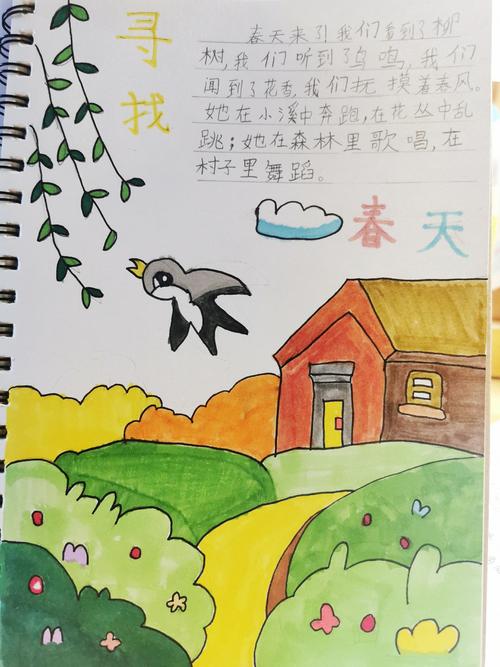 寻找
春天来了我们看到了柳
树,我们听到了鸟鸣,我们
闻到了花香,我们抚摸着春风。
她在小溪中奔跑,在花丛中乱
跳;她在森林里歌唱,在
村子里舞蹈。
春天